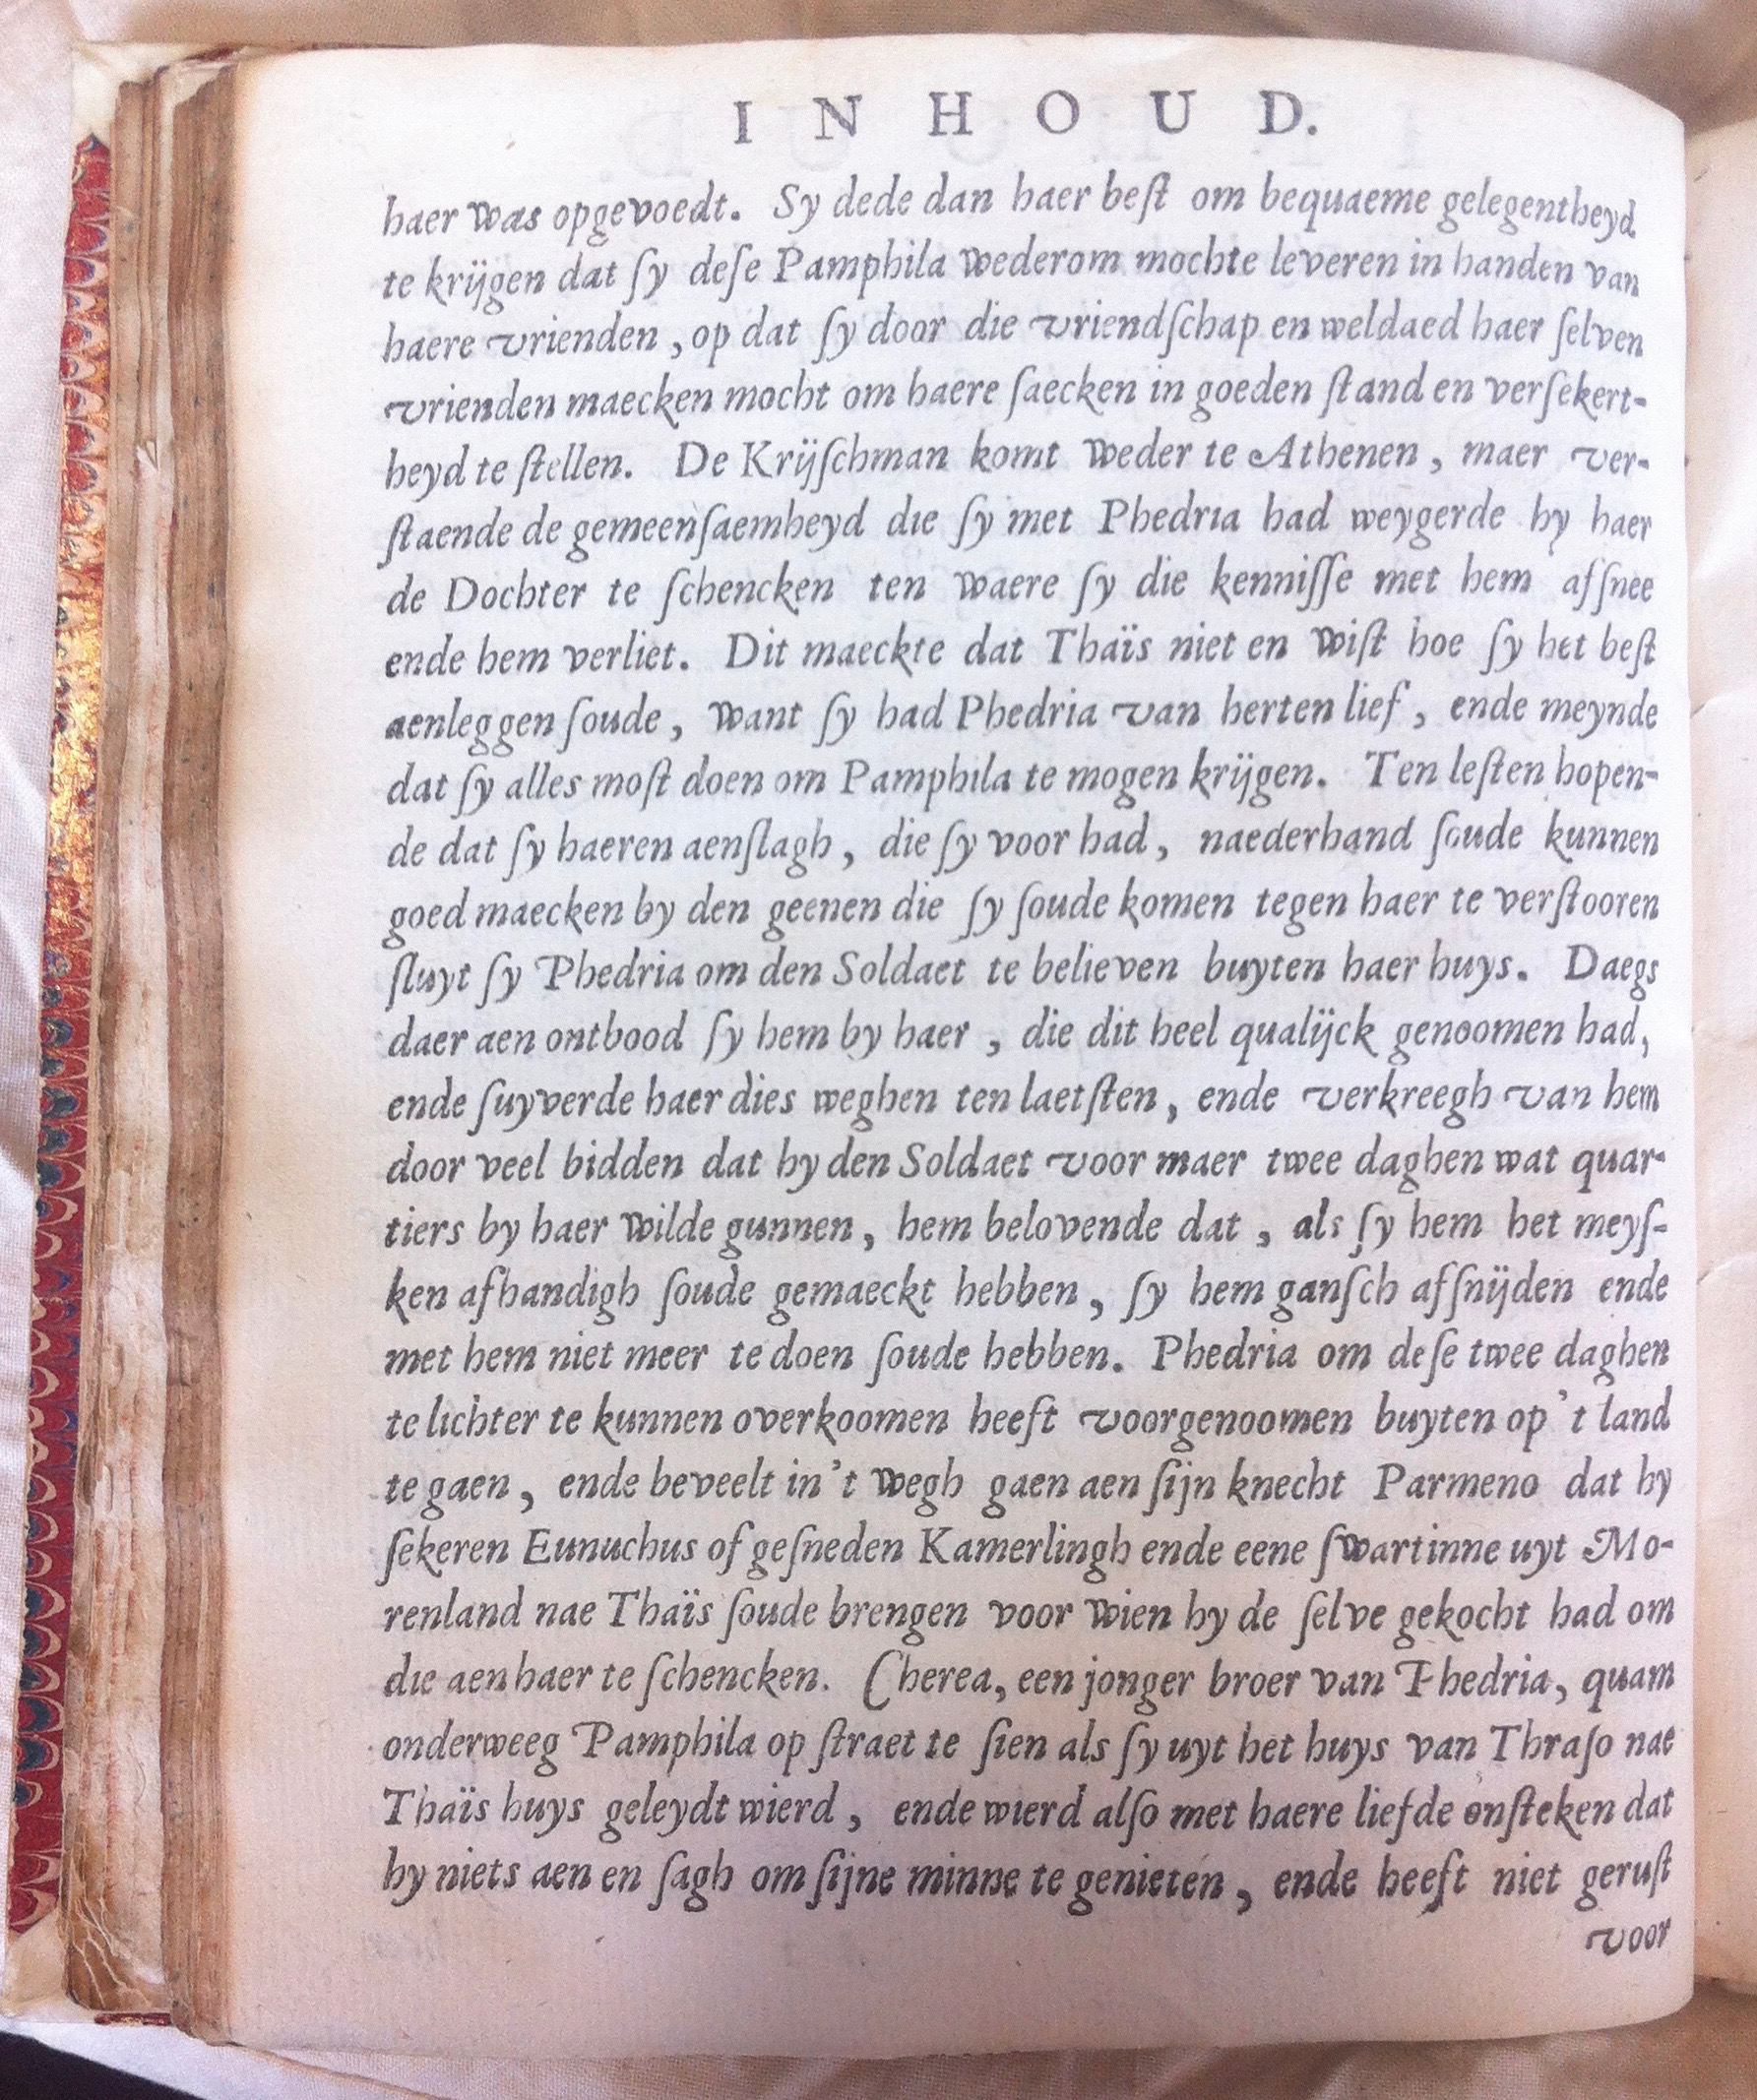 INHOUD.
haer was opgevoedt. Sy dede dan haer beſt om bequaeme gelegentheyd
te krijgen dat ſy deſe Pamphila wederom mochte leveren in handen van
haere vrienden, op dat ſy door die vriendſchap en weldaed haer ſelven
vrienden maecken mocht om haere ſaecken in goeden ſtand en verſekert-
heyd te ſtellen. De Krijſchman komt weder te Athenen, maer ver-
ſtaende de gemeenſaemheyd die ſy met Phedria had weygerde hy haer
de Dochter te ſchencken ten waere ſy die kenniſſe met hem afſnee
ende hem verliet. Dit maeckte dat Thaïs niet en wiſt hoe ſy het beſt
aenleggen ſoude, want ſy had Phedria van herten lief, ende meynde
dat ſy alles moſt doen om Pamphila te mogen krijgen. Ten leſten hopen-
de dat ſy haeren aenſlagh, die ſy voor had, naederhand ſoude kunnen
goed maecken by den geenen die ſy ſoude komen tegen haer te verſtooren
ſluyt ſy Phedria om den Soldaet te believen buyten haer huys. Daegs
daer aen ontbood ſy hem by haer, die dit heel qualijck genoomen had,
ende ſuyverde haer dies weghen ten laetſten, ende verkreegh van hem
door veel bidden dat hy den Soldaet voor maer twee daghen wat quar-
tiers by haer wilde gunnen, hem belovende dat, als ſy hem het meyſ-
ken afhandigh ſoude gemaeckt hebben, ſy hem ganſch afſnijden ende
met hem niet meer te doen ſoude hebben. Phedria om deſe twee daghen
te lichter te kunnen overkoomen heeft voorgenoomen buyten op't land
te gaen, ende beveelt in't wegh gaen aen ſijn knecht Parmeno dat hy
ſekeren Eunuchus of geſneden Kamerlingh ende eene ſwartinne uyt Mo-
renland nae Thaïs ſoude brengen voor wien hy de ſelve gekocht had om
die aen haer te ſchencken. Cherea, een jonger broer van Phedria, quam
onderweeg Pamphila op ſtraet te ſien als ſy uyt het huys van Thraſo nae
Thaïs huys geleydt wierd, ende wierd alſo met haere liefde onſteken dat
hy niets aen en ſagh om ſijne minne te genieten, ende heeft niet geruſt
voor